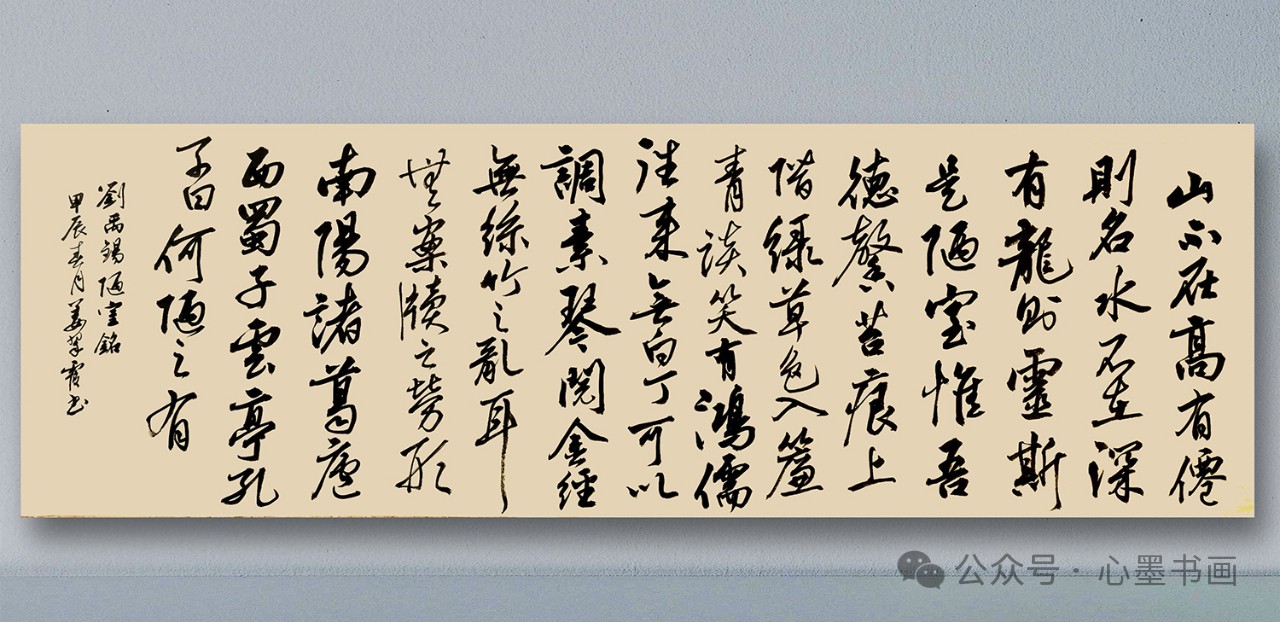 山不在高有僊
則名水不在深
有龍則靈斯
是陋室惟吾
德馨苔痕上
階緑草色入簾
青談笑有鴻儒
往来無白丁可以
調素琴閲金經
無絲竹之亂耳
無案牘之勞形
南陽諸葛廬
西蜀子雲亭孔
子曰何陋之有
劉禹錫陋室銘
甲辰春月姜翠霞书
公众号·心墨书画